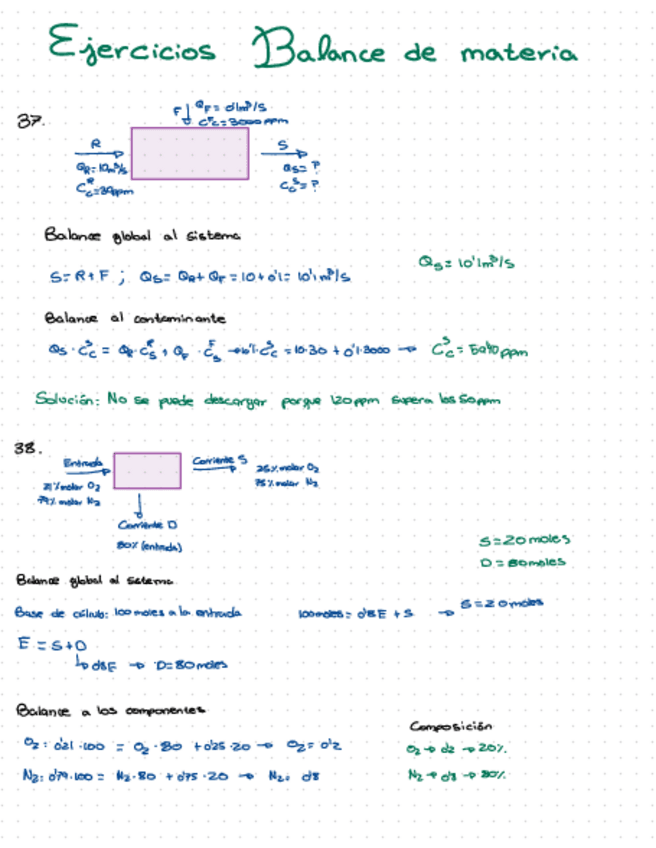 Ejercicios Balance de materia
37.
F Q_F = 0'1m³/s
C_C^F = 3000 ppm
R
Q_R = 10m³/s
C_C^R = 30ppm
S
Q_S = ?
C_C^S = ?
Balance global al sistema
S = R + F ; Q_S = Q_R + Q_F = 10 + 0'1 = 10'1 m³/s
Q_S = 10'1m³/s
Balance al contaminante
= 10·30 + 0'1·3000 → C_C^S =
Solución: No se puede descargar porque 120 ppm supera los 50 ppm
38.
Entrada
21% molar O₂
79% molar N₂
Corriente S
25% molar O₂
75% molar N₂
Corriente D
80% (entrada)
S = 20 moles
D = 80 moles
Balance global al sistema
Base de cálculo: 100 moles a la entrada
100 moles = 0'8 E + S → S = 20 moles
E = S + D
↳ 0'8E → D = 80 moles
Balance a los componentes
O₂: 0'21·100 = O₂·80 + 0'25·20 → O₂ = 0'2
N₂: 0'79·100 = N₂·80 + 0'75·20 → N₂: 0'8
Composición
O₂ → 0'2 → 20%
N₂ → 0'8 → 80%